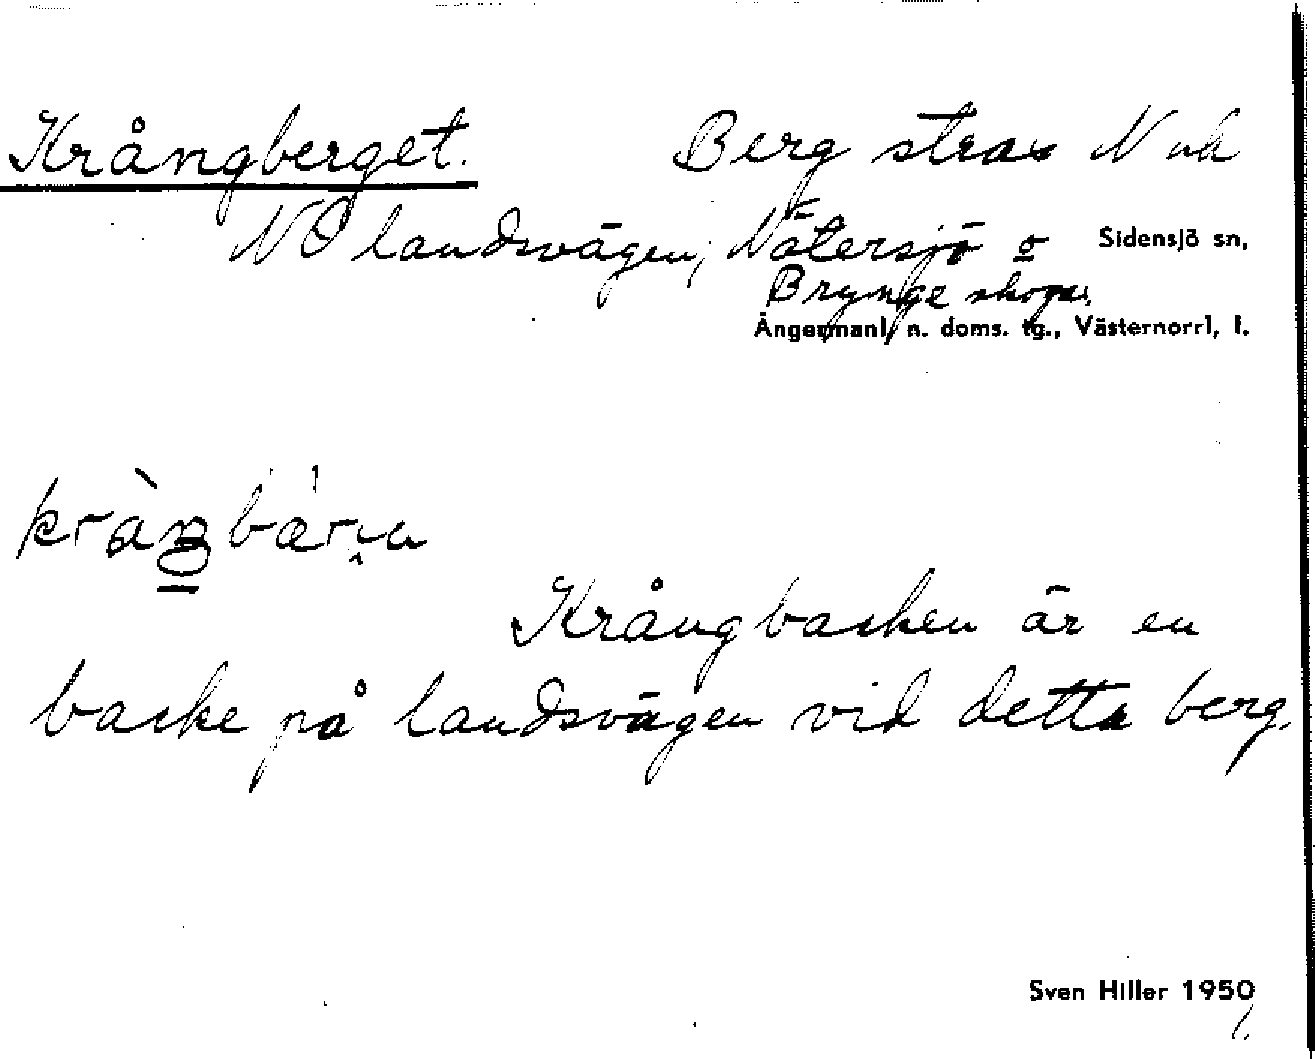 Krångberget. Berg strax N och
NO landsvägen, Nätersjö o Sidensjö sn,
Brynge skogar,
Ångermanl, n. doms. tg., Västernorrl, l.
Krångbacken är en
backe på landsvägen vid detta berg.
Sven Hiller 1950